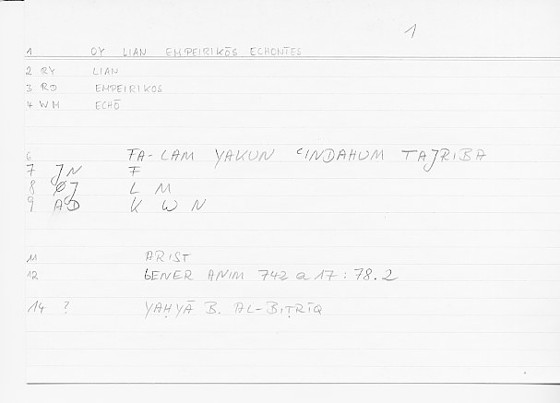 1
1 OY LIAN EMPEIRIKŌS ECHONTES
2 RY LIAN
3 RD EMPEIRIKOS
4 WH ECHŌ
6 FA-LAM YAKUN ʿINDAHUM TAJRIBA
7 JN F
8 ØJ L M
9 AD K W N
11 ARIST
12 GENER ANIM 742 a 17 : 78.2
14 ? YAḤYĀ B. AL-BIṬRĪQ